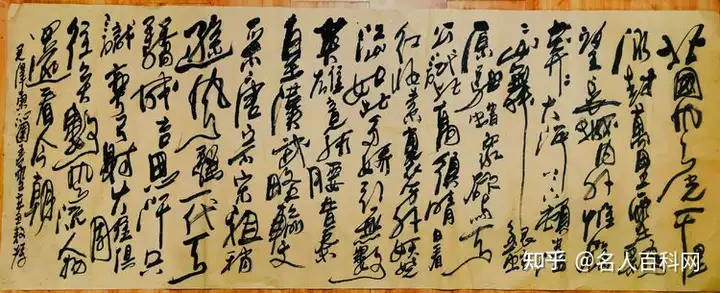 北國風光千里
冰封萬里雪飄
望長城內外惟餘
莽莽大河上下頓失滔滔
山舞銀蛇
原馳蠟象欲與天
公試比高須晴日看
紅妝素裹分外妖嬈
江山如此多嬌引無數
英雄競折腰惜秦
皇漢武略輸文
采唐宗宋祖稍
遜風騷一代天
驕成吉思汗只
識彎弓射大雕俱
往矣數風流人物
還看今朝
毛澤東沁園春雪
知乎 @名人百科网